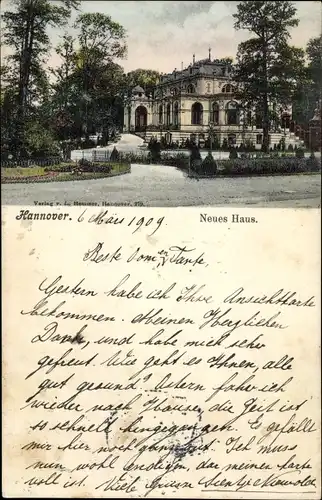 Verlag v. L. Hemmer, Hannover. 279.
Hannover. 6 März 1909 Neues Haus.
Beste Oom en Tante.
Gestern habe ich Ihre Ansichtkarte
bekommen. Meinen Herzlichen
Dank, und habe mich sehr
gefreut. Wie geht es Ihnen, alle
gut gesund? Ostern fahre ich
wieder nach Hause, die Zeit ist
so schnell hingegangen. Es gefällt
mir hier noch ganz gut. Ich muss
nun wohl endigen, da meiner Karte
voll ist. Viele Grüsse